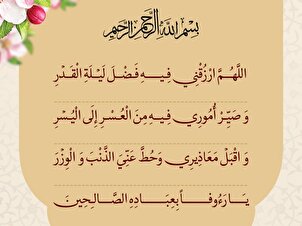 بِسْمِ اللَّهِ الرَّحْمَٰنِ الرَّحِيمِ
اللَّهُمَّ ارْزُقْنِي فِيهِ فَضْلَ لَيْلَةِ الْقَدْرِ
وَ صَيِّرْ أُمُورِي فِيهِ مِنَ الْعُسْرِ إِلَى الْيُسْرِ
وَ اقْبَلْ مَعَاذِيرِي وَ حُطَّ عَنِّيَ الذَّنْبَ وَ الْوِزْرَ
يَا رَءُوفاً بِعِبَادِهِ الصَّالِحِينَ